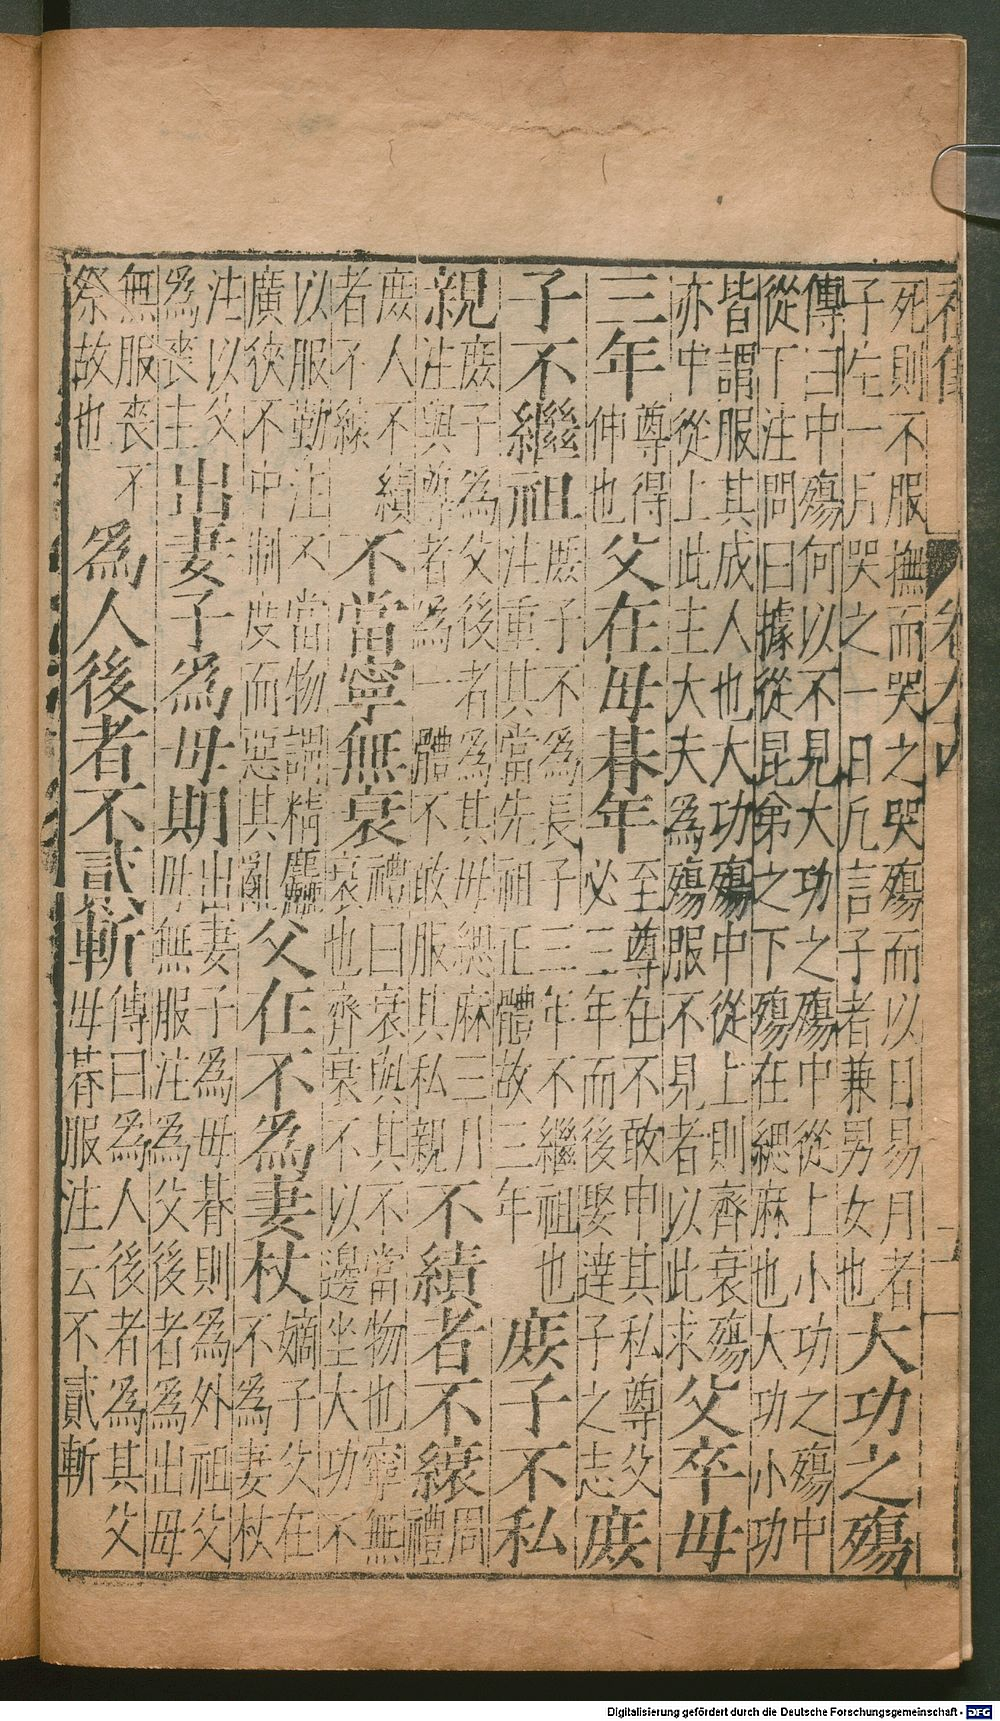 死則不服撫而哭之哭殤而以日易月者
子生一月哭之一日凡言子者兼男女也
大功之殤
傳曰中殤何以不見大功之殤中從上小功之殤中
從下注問曰據從昆弟之下殤在緦麻也大功小功
皆謂服其成人也大功殤中從上則齊衰殤
亦中從上此主大夫為殤服不見者以此求
父卒母
三年
尊得
伸也
父在母朞年
至尊在不敢申其私尊父
必三年而後娶達子之志
庶
子不繼祖
庶子不為長子三年不繼祖也
注重其當先祖正體故三年
庶子不私
親
庶子為父後者為其母緦麻三月
注與尊者為一體不敢服其私親
不績者不縗
周
禮
庶人不績
者不縗
不當寧無衰
禮曰衰與其不當物也寧無
衰也齊衰不以邊坐大功不
以服勤注不當物謂精麤
廣狹不中制度而惡其亂
父在不為妻杖
嫡子父在
不為妻杖
注以父
為喪主
出妻子為母期
出妻子為母朞則為外祖父
母無服注為父後者為出母
無服喪不
祭故也
為人後者不貳斬
傳曰為人後者為其父
母朞服注云不貳斬
Digitalisierung gefördert durch die Deutsche Forschungsgemeinschaft - DFG